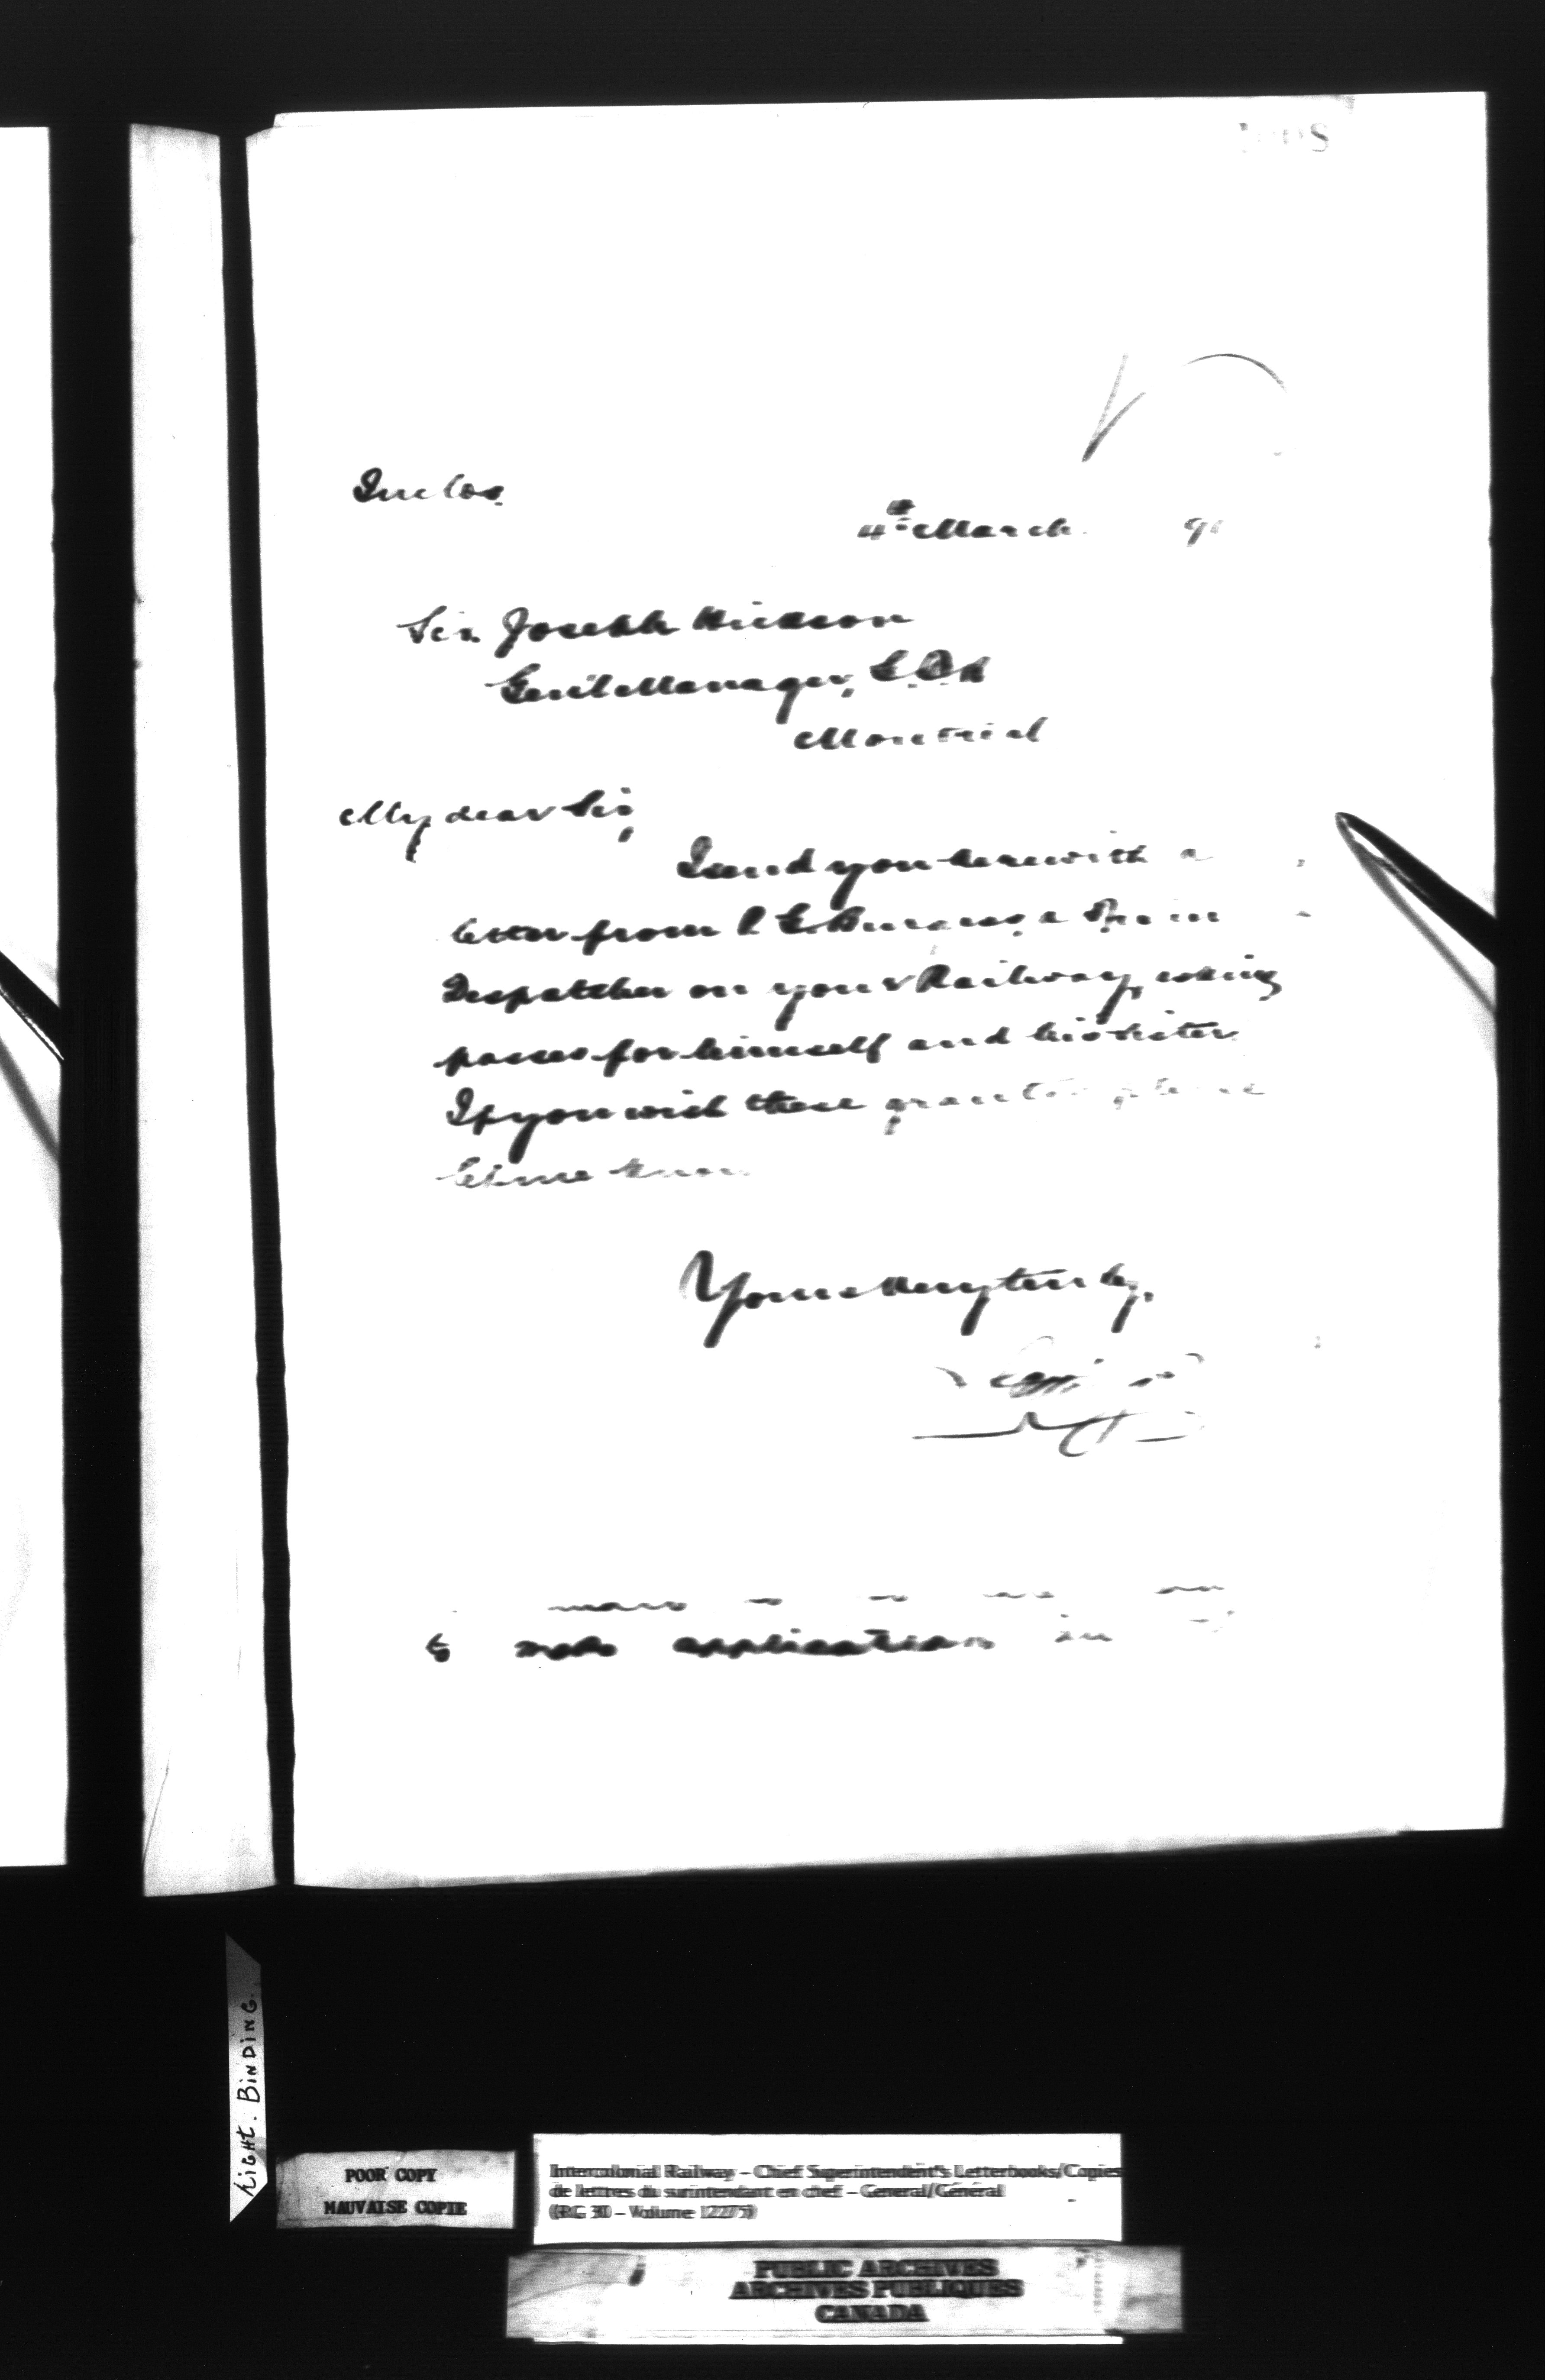 Inclos.
4th March 91
Sir Joseph Hickson
Gen'l Manager, G.T.R
Montreal
My dear Sir,
I send you herewith a
letter from a Train
Despatcher on your Railway, asking
passes for himself and his sister.
If you wish these granted please
let me know.
Yours very truly,
to application in
Light. BINDING.
POOR COPY
MAUVAISE COPIE
Intercolonial Railway – Chief Superintendent's Letterbooks/Copies
de lettres du surintendant en chef – General/Général
(RG 30 – Volume 12275)
PUBLIC ARCHIVES
ARCHIVES PUBLIQUES
CANADA